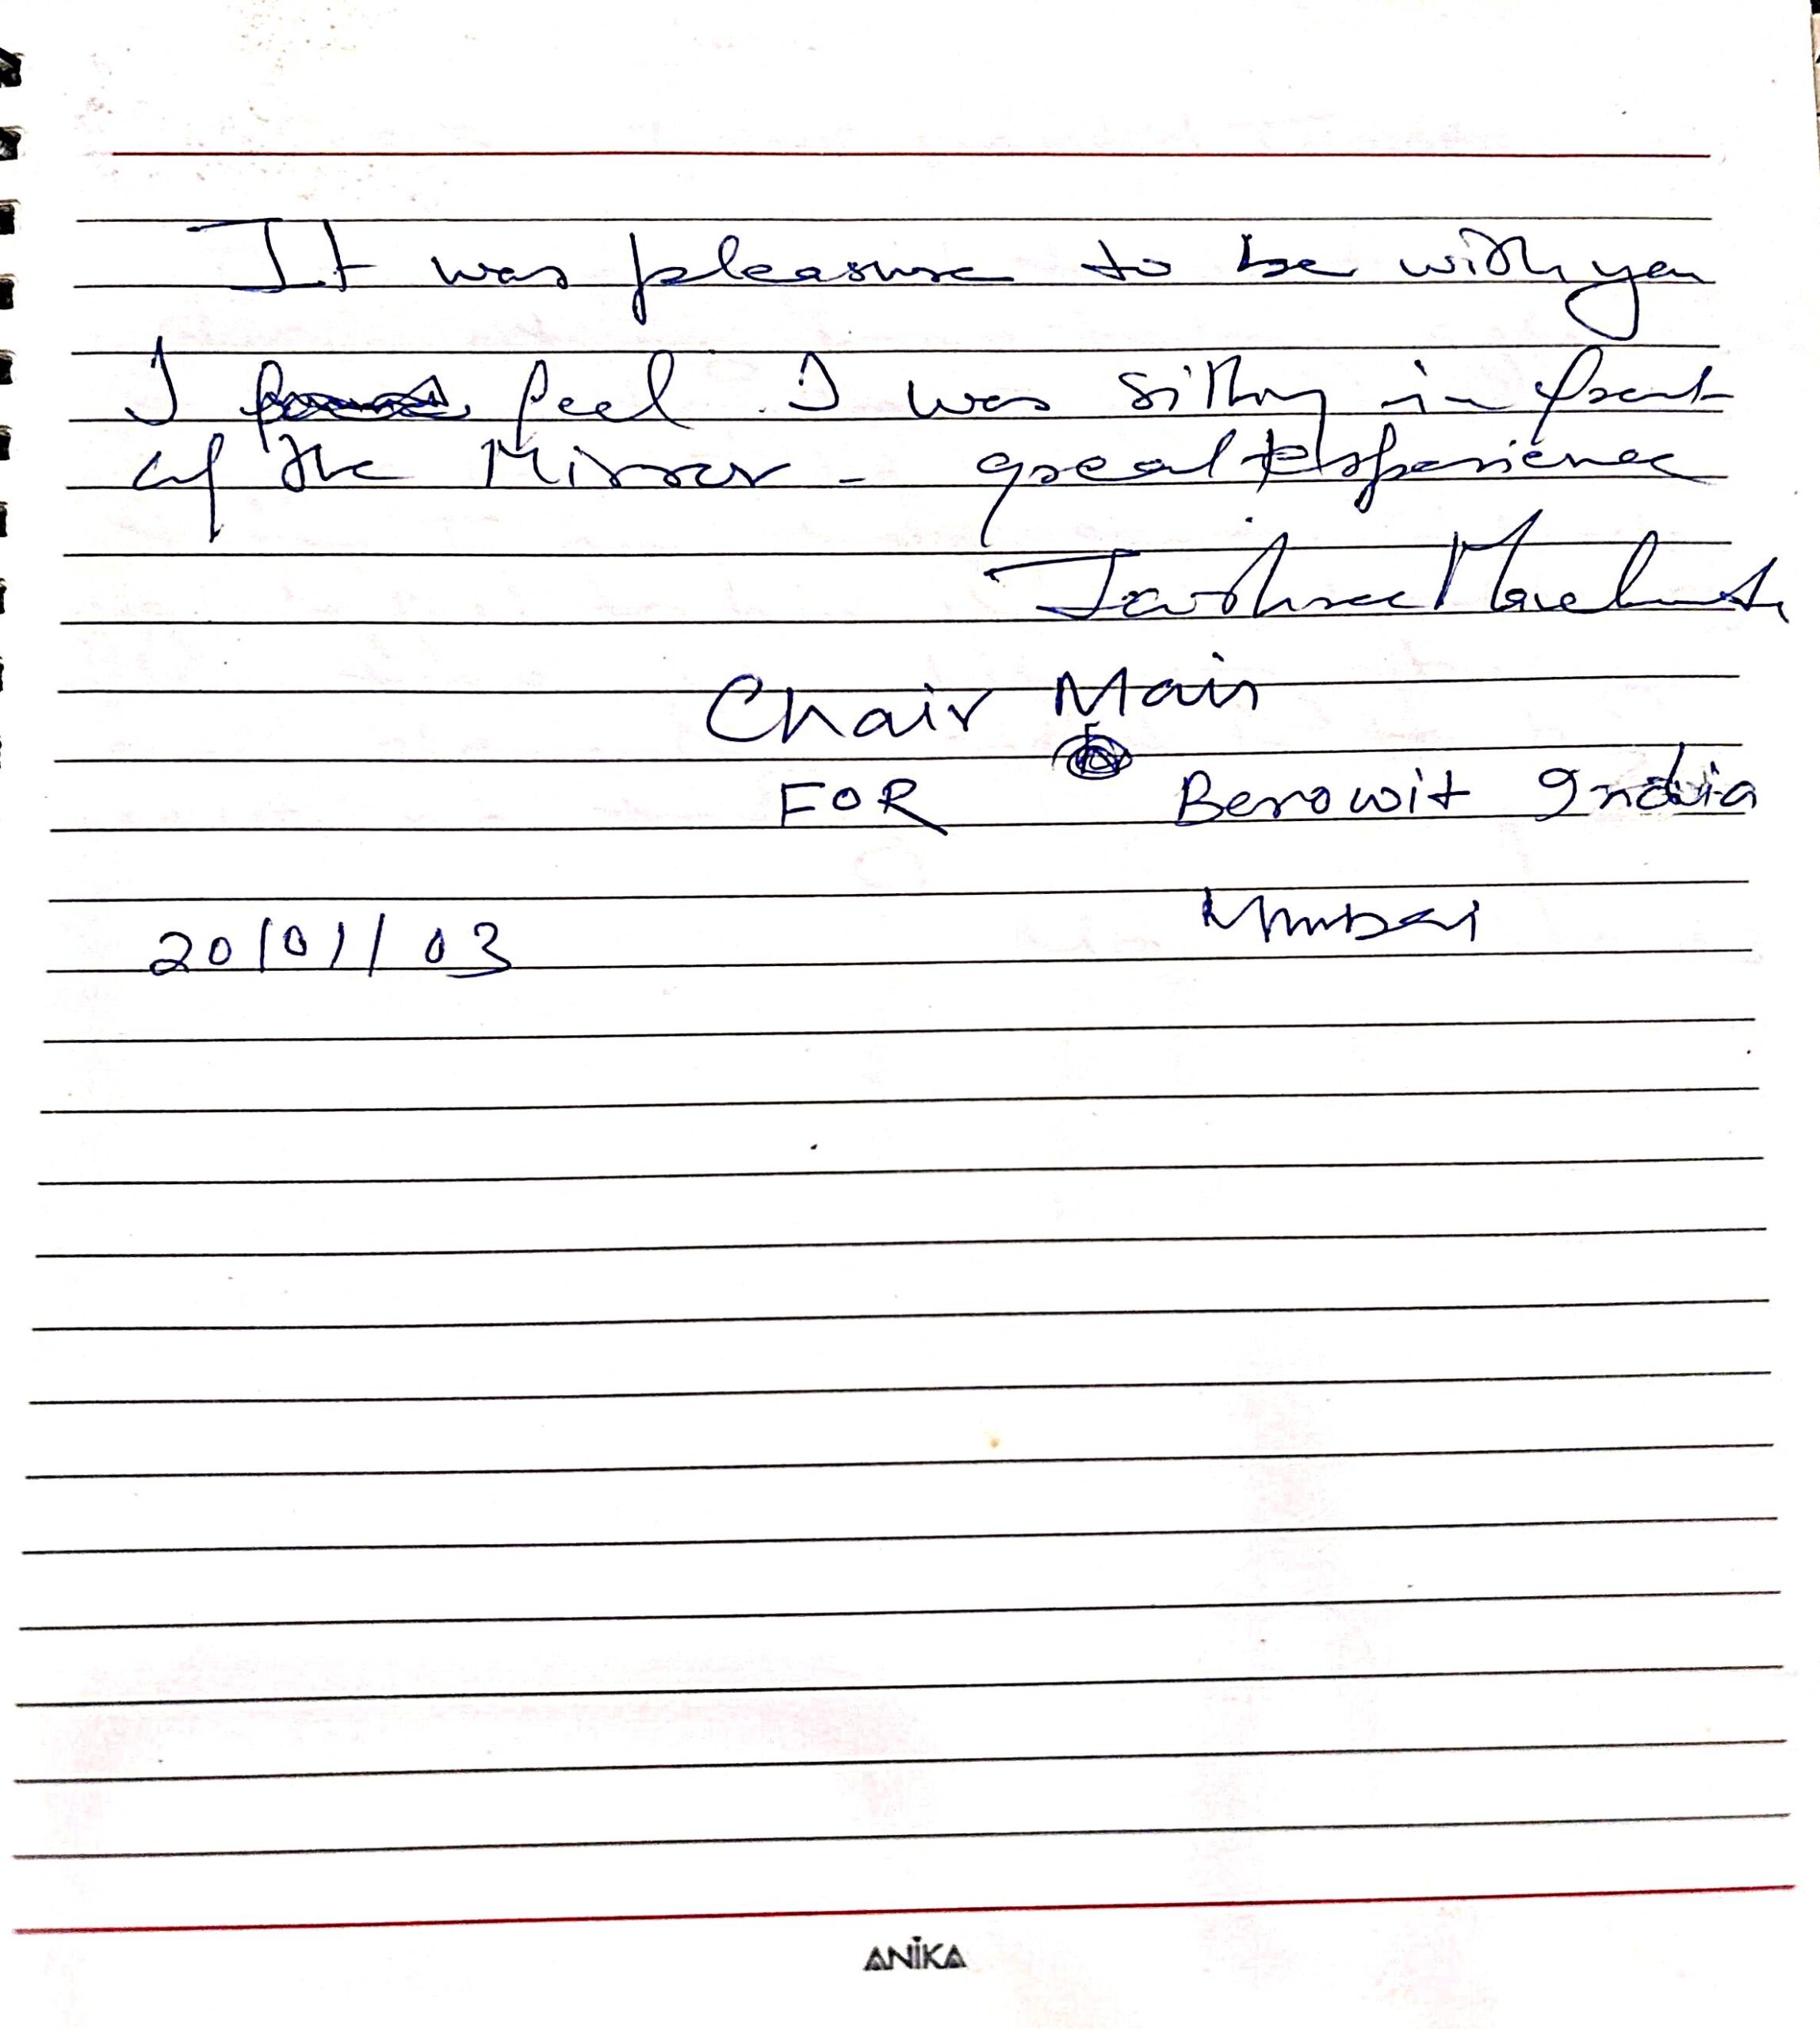 It was pleasure to be with you
I feel I was sitting in front
of the Mirror - great Experience
Chair Main
FOR Berowit India
Mumbai
20/01/03
ANIKA